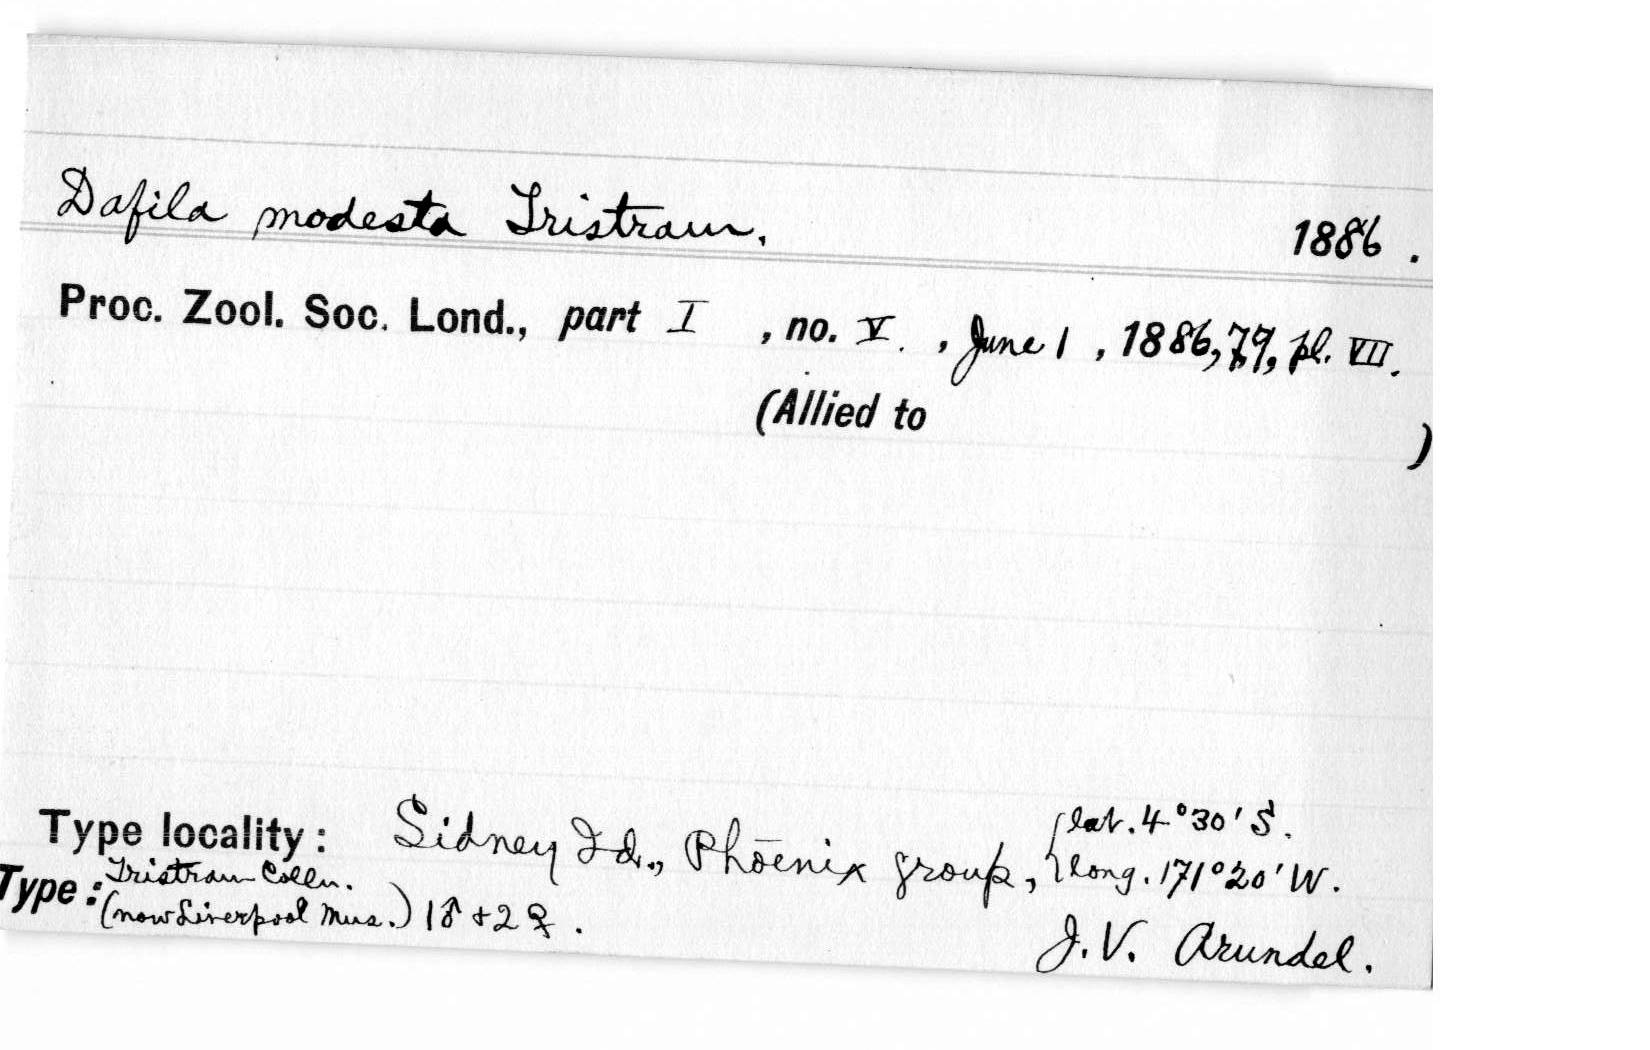 Dafila modesta Tristram. 1886.
Proc. Zool. Soc. Lond., part I, no. V., June 1, 1886, 79, pl. VII.
(Allied to )
Type locality: Sidney Id., Phoenix group, { lat. 4°30' S.
long. 171°20' W.
Type: Tristram Colln.
(now Liverpool Mus.) 1♂ + 2♀.
J. V. Arundel.